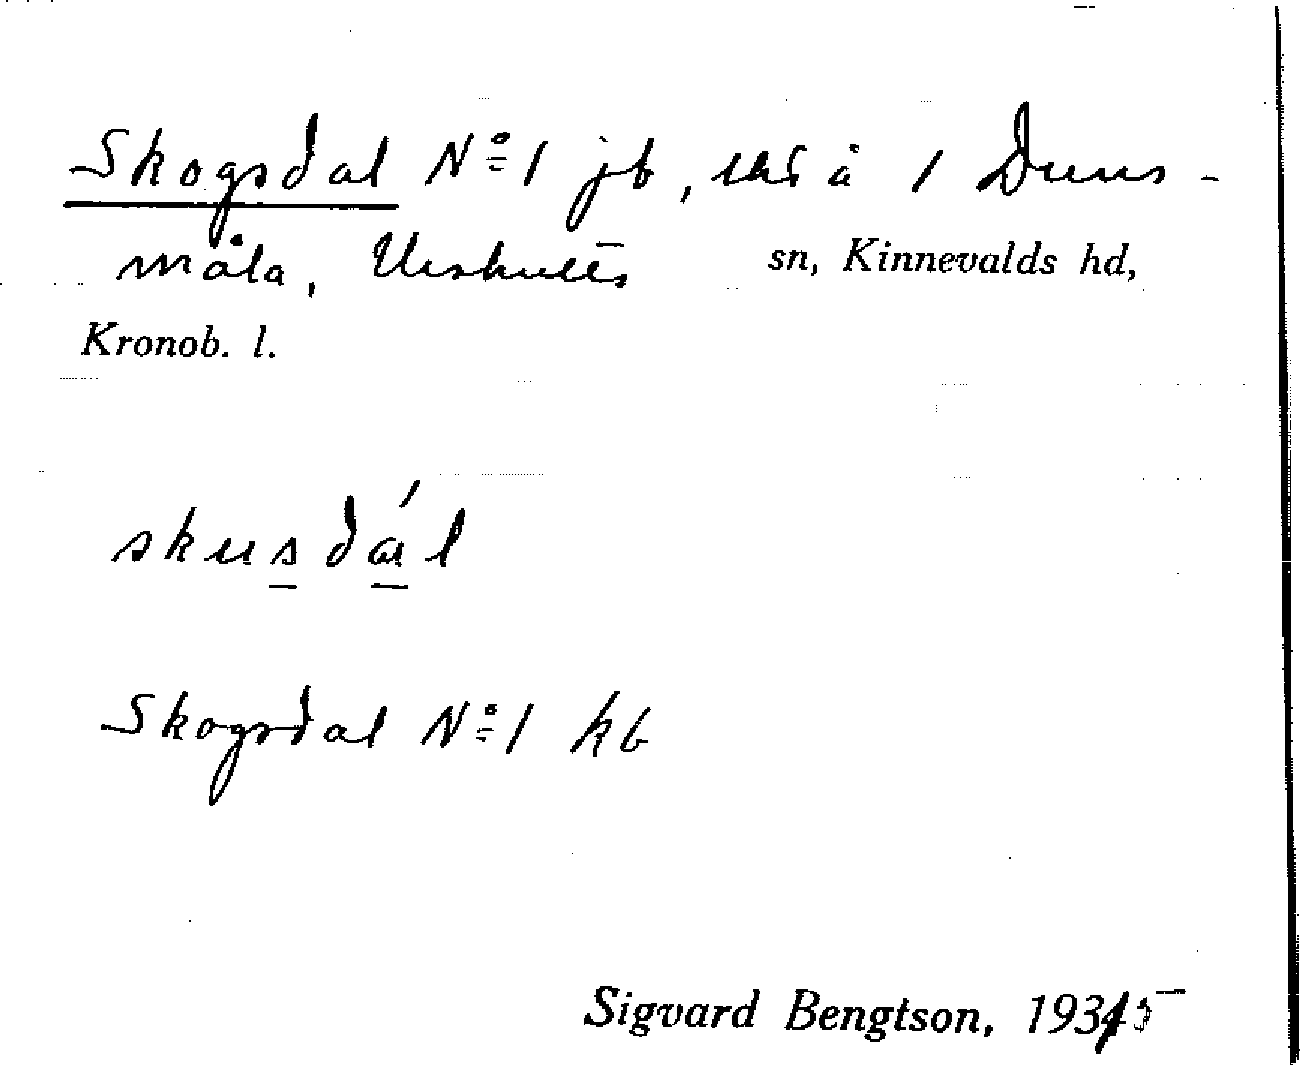 Skogsdal Nº 1 jb, lht å 1 Duns-
måla, Urshults sn, Kinnevalds hd,
Kronob. l.
skusdál
Skogsdal Nº 1 kb
Sigvard Bengtson, 1935